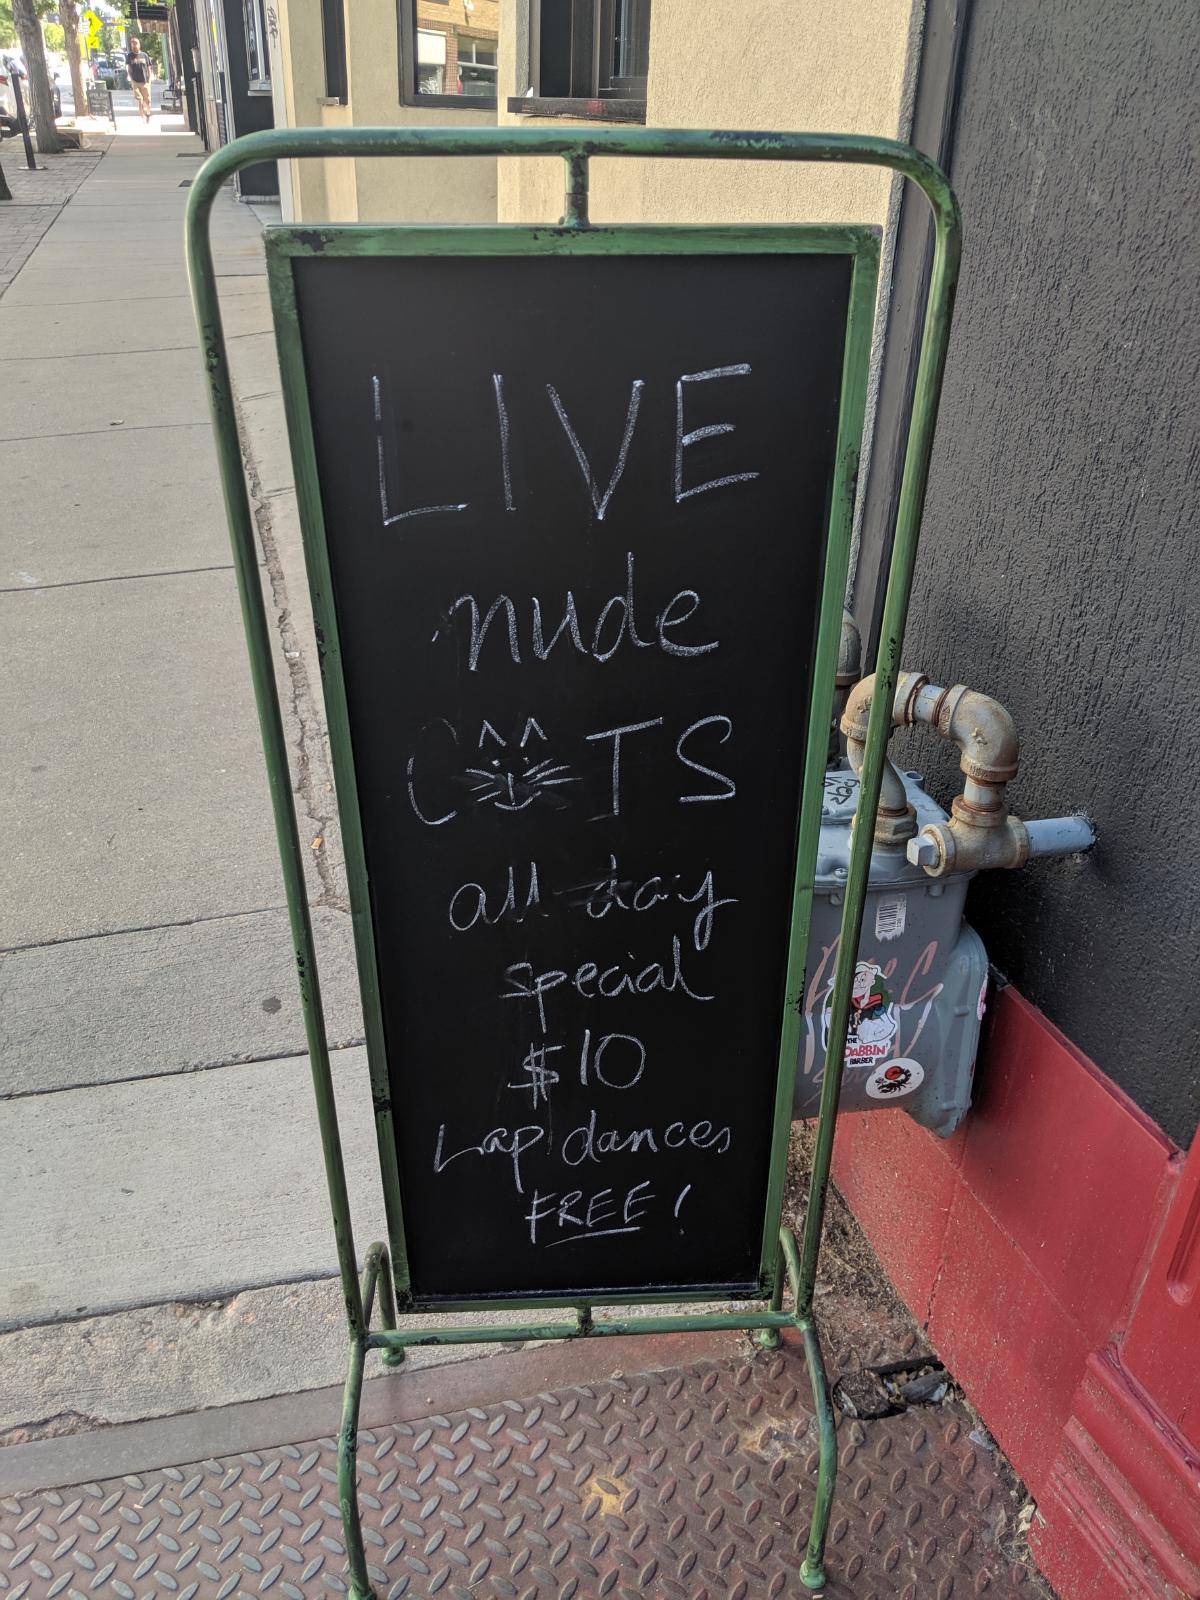 LIVE
nude
CATS
all day
special
$10
Lap dances
FREE!
THE
DABBIN'
BARBER